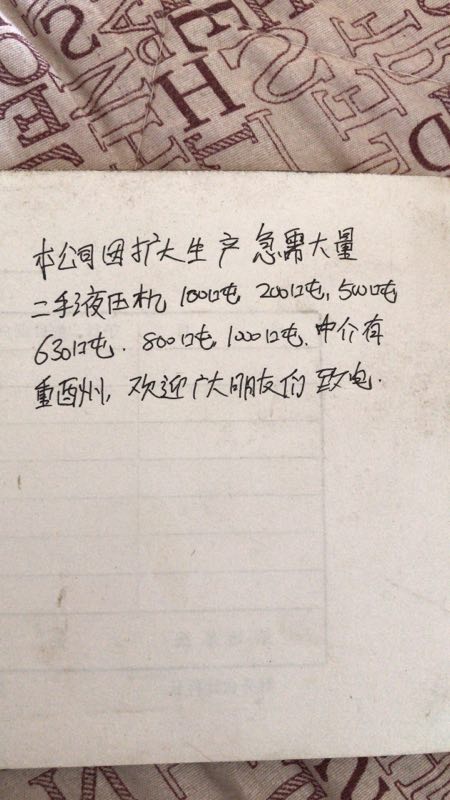 本公司因扩大生产 急需大量
二手液压机 100吨, 200吨, 500吨
630吨. 800吨, 1000吨. 中介有
重酬, 欢迎广大朋友们 致电.